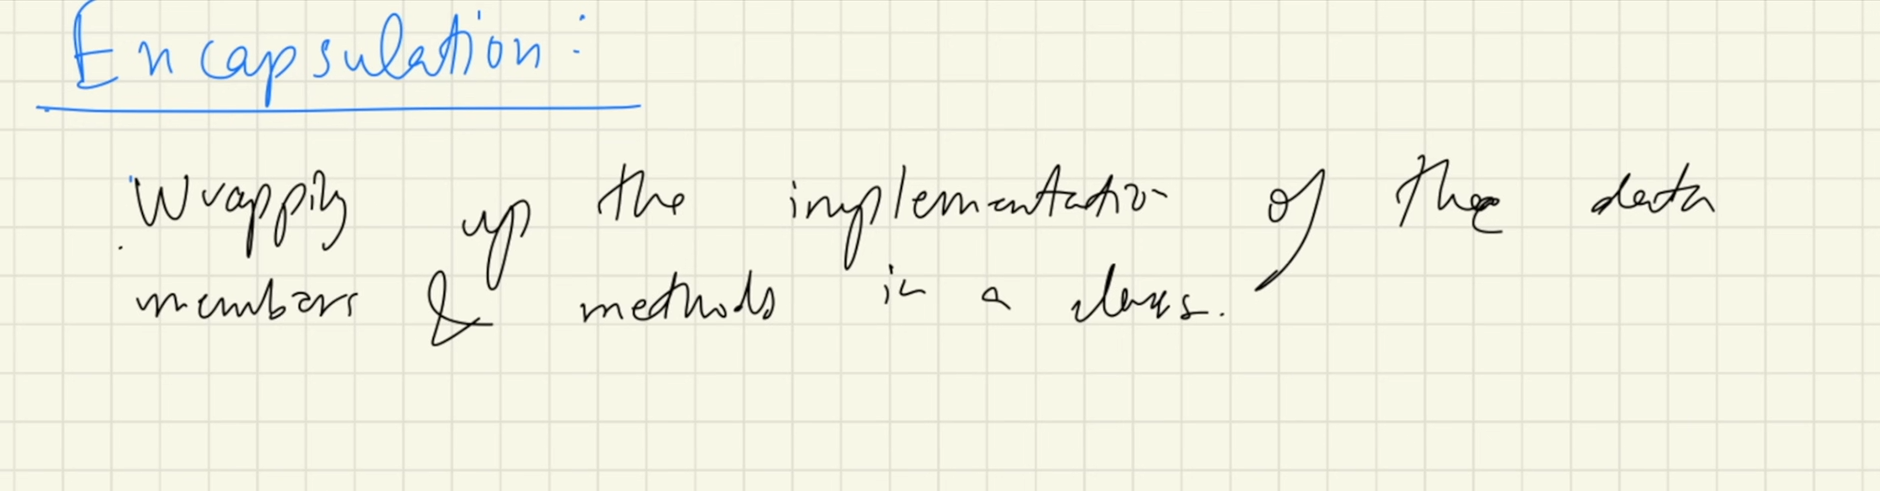 Encapsulation:
Wrapping up the implementation of the data
members & methods in a class.